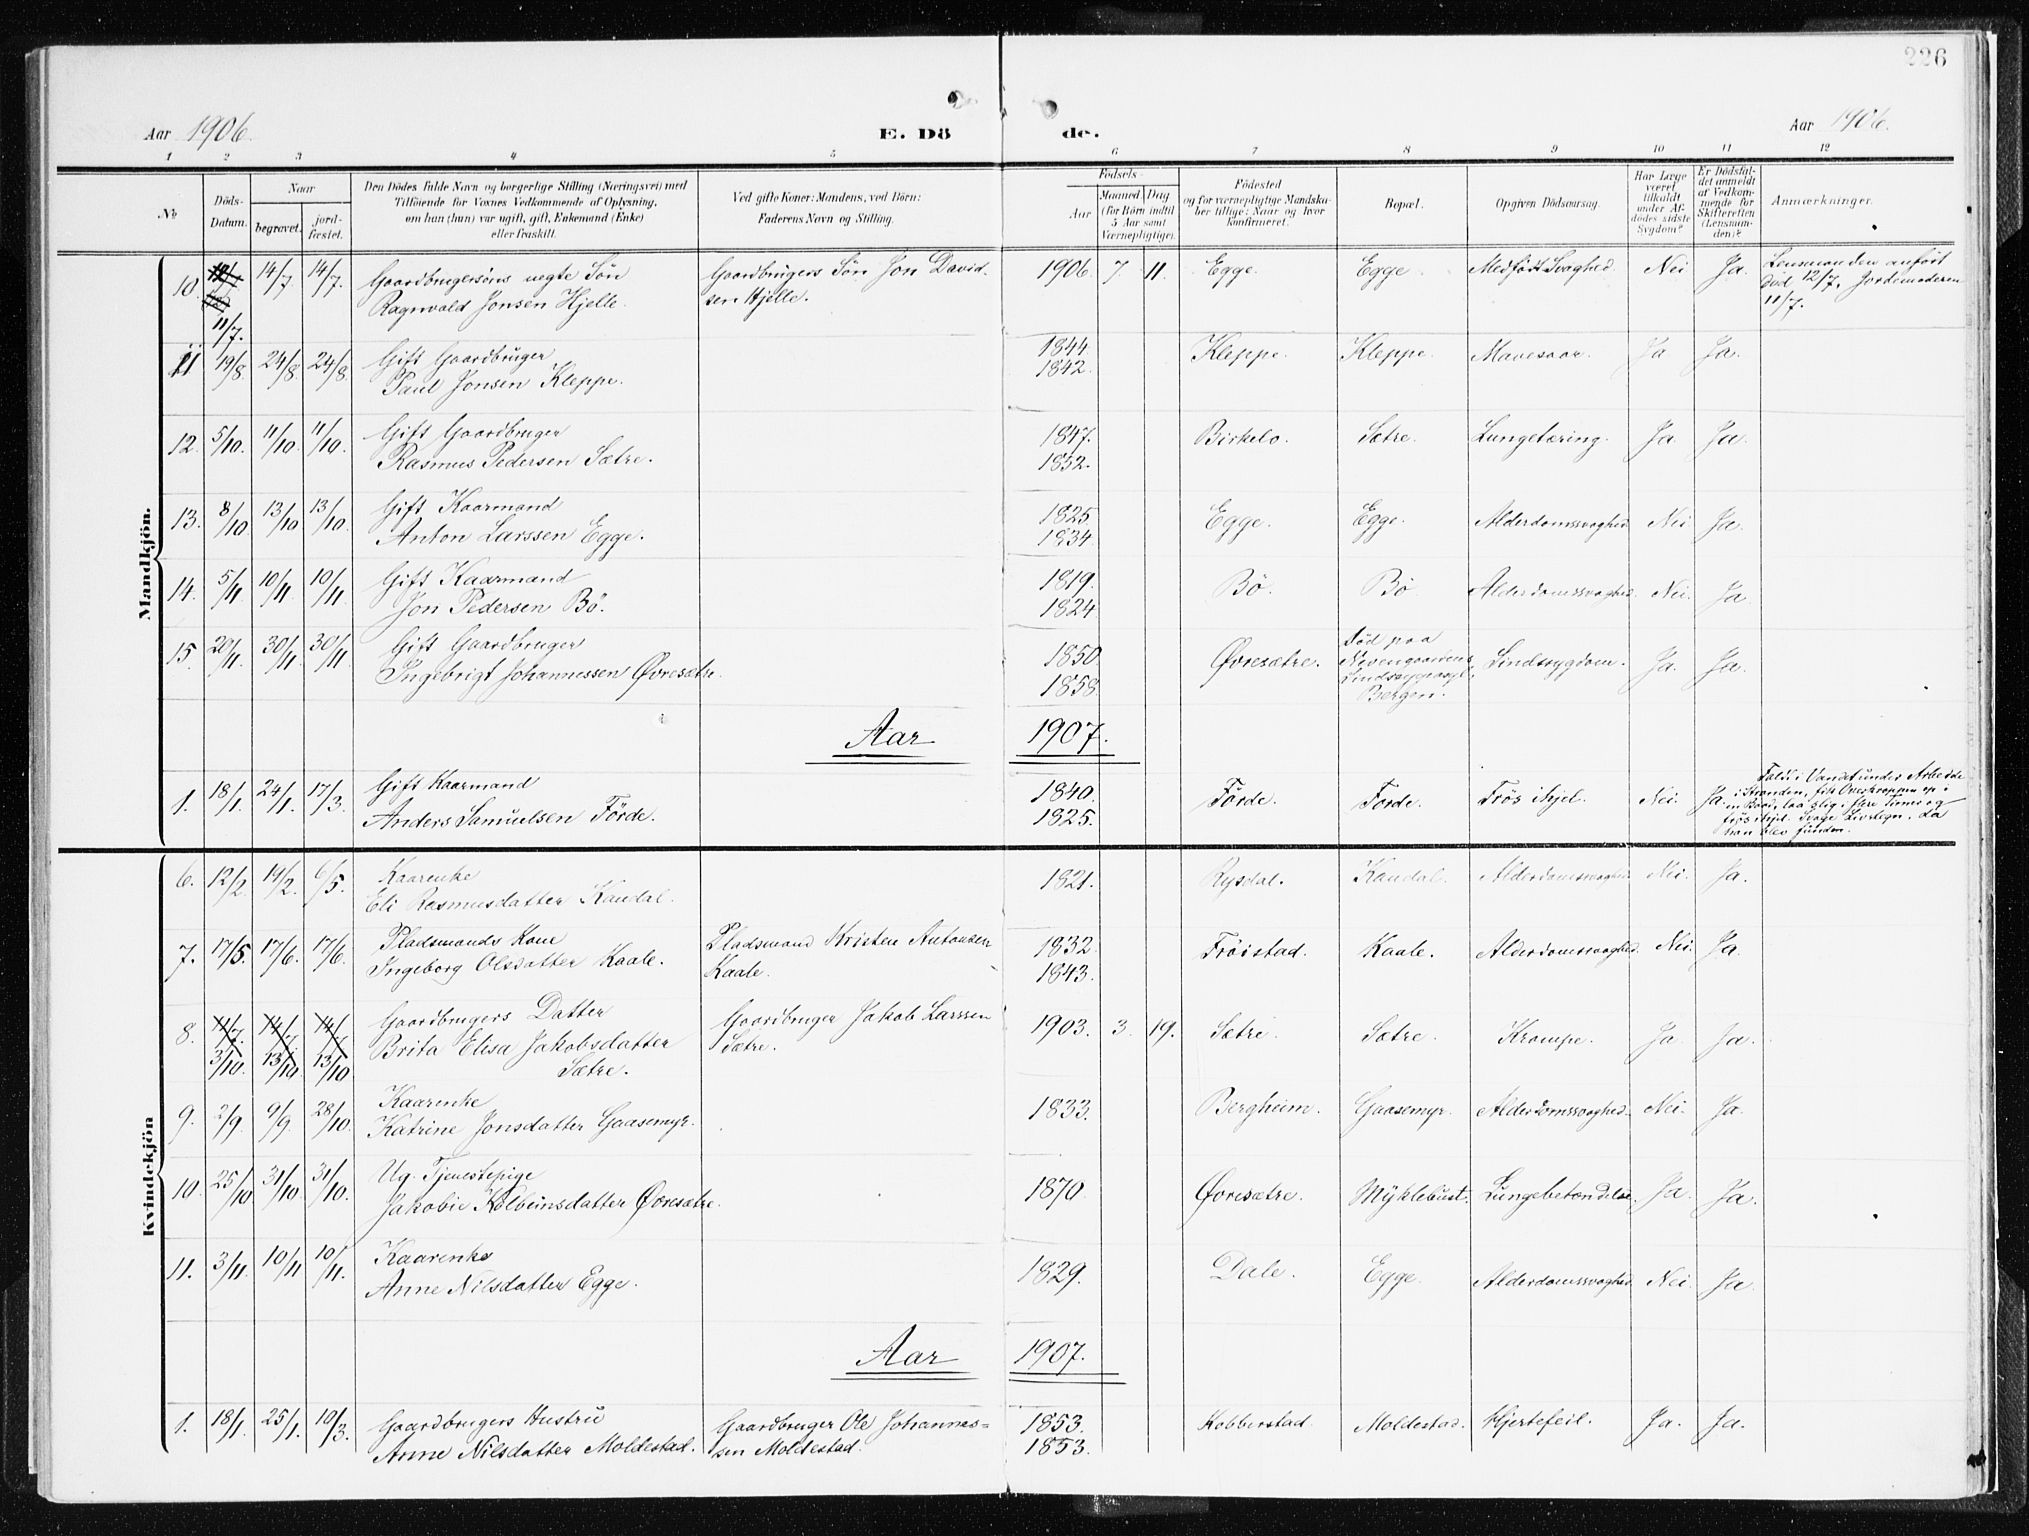 226
Aar 1906.
E. Dö de.
Aar 1906.
1 2 3 4 5 6 7 8 9 10 11 12
№
Döds-Datum.
Naar
begravet.
jord-fæstet.
Den Dödes fulde Navn og borgerlige Stilling (Næringsvei) med
Tilföiende for Voxnes Vedkommende af Oplysning,
om han (hun) var ugift, gift, Enkemand (Enke)
eller fraskilt.
Ved gifte Koner: Mandens, ved Börn:
Faderens Navn og Stilling.
Födsels-
Aar
Maaned Dag
(for Börn indtil
5 Aar samt
Værnepligtige).
Födested
og for værnepligtige Mandska-
ber tillige: Naar og hvor
konfirmeret.
Bopæl.
Opgiven Dödsaarsag.
Har Læge
været
tilkaldt
under Af-
dödes sidste
Sygdom?
Er Dödsfal-
det anmeldt
af Vedkom-
mende for
Skifteretten
(Lensman-
den)?
Anmærkninger.
Mandkjön.
10. 11/7. 14/7. 14/7. Gaardbrugersöns uegte Sön Gaardbrugers Sön Jon David- 1906. 7. 11. Egge. Egge. Medfödt Svaghed. Nei Ja. Lensmanden anfört
Ragnvald Jonsen Hjelle. sen Hjelle. död 12/7, Jordemoderen
11/7.
11 19/8. 24/8. 24/8. Gift Gaardbruger 1844. Kleppe. Kleppe. Mavesaar. Ja Ja.
Paul Jonsen Kleppe. 1842.
12. 5/10. 11/10. 11/10. Gift Gaardbruger 1847. Birkelo. Sætre. Lungetæring. Ja Ja.
Rasmus Pedersen Sætre. 1852.
13. 8/10 13/10 13/10. Gift Kaarmand 1825. Egge. Egge. Alderdomssvaghed Nei Ja.
Anton Larssen Egge. 1834.
14. 5/11. 10/11 10/11. Gift Kaarmand 1819. Bö. Bö Alderdomssvaghed. Nei. Ja
Jon Pedersen Bö. 1824.
15. 20/11. 30/11. 30/11 Gift Gaardbruger 1850. Øvresætre. Död paa Sindssygdom. Ja. Ja.
Ingebrigt Johannessen Øvresætre. 1858.
Bergen.
Aar 1907.
1. 18/1. 24/1. 17/3. Gift Kaarmand 1840. Förde. Förde. Frös ihjel. Nei. Ja. Faldt i Vandet under Arbeide
Anders Samuelsen Förde. 1825. i Stranden, fik Overkroppen op i
en Baad, laa slig i flere Timer og
frös ihjel. Svage Livstegn, da
han blev funden.
Kvindekjön
6. 12/2. 19/2. 6/5. Kaarenke 1821. Rysdal. Kandal. Alderdomssvaghed Nei. Ja.
Eli Rasmusdatter Kandal.
7. 17/5. 17/6. 17/6. Pladsmands Kone Pladsmand Kristen Antonsen 1832. Fröistad. Kaale. Alderdomssvaghed. Nei. Ja.
Ingeborg Olsdatter Kaale. Kaale. 1843.
8. 11/7. 14/7. 14/7. Gaardbrugers Datter Gaardbruger Jakob Larssen 1903. 3. 19. Sætre. Sætre. Krampe. Ja Ja.
3/10. 13/10 13/10 Brita Elisa Jakobsdatter Sætre.
Sætre.
9. 2/9. 9/9. 28/10. Kaarenke 1833. Bergheim. Gaasemyr. Alderdomssvaghed. Nei. Ja.
Katrine Jonsdatter Gaasemyr.
10. 25/10 31/10. 31/10. Ug. Tjenestepige 1870. Øvresætre. Myklebust. Lungebetændelse. Ja. Ja.
Jakobie Kolbeinsdatter Øvresætre.
11. 3/11. 10/11 10/11. Kaarenke 1829. Dale. Egge. Alderdomssvaghed Nei Ja.
Anne Nilsdatter Egge.
Aar 1907.
1. 18/1. 25/1. 10/3. Gaardbrugers Hustru Gaardbruger Ole Johannes- 1853. Kobberstad. Moldestad. Hjertefeil. Ja. Ja.
Anne Nilsdatter Moldestad. sen Moldestad. 1853.